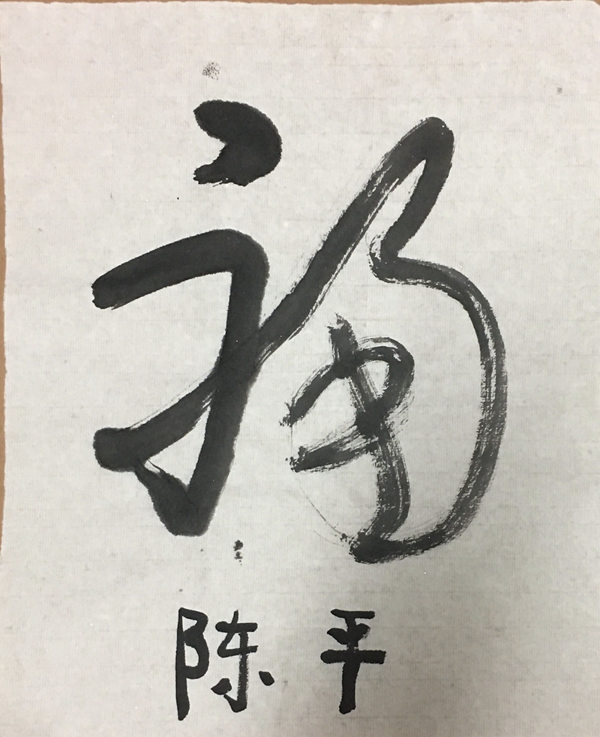 福
陈平